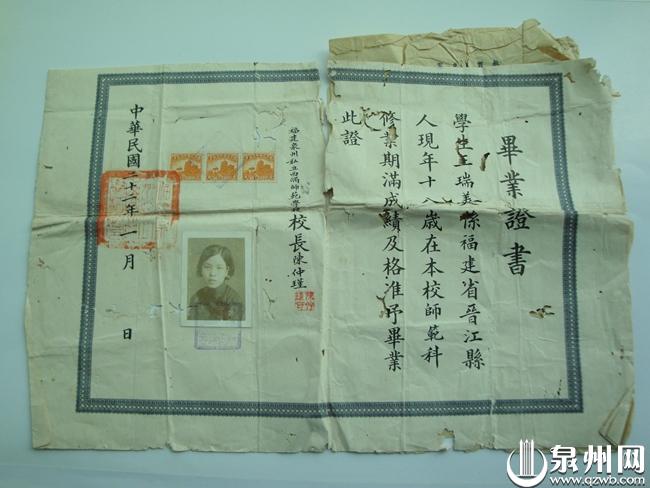 畢業證書
學生王瑞美係福建省晉江縣
人現年十八歲在本校師範科
修業期滿成績及格准予畢業
此證
校長陳仲瑾
中華民國二十二年一月 日
泉州网
www.qzwb.com